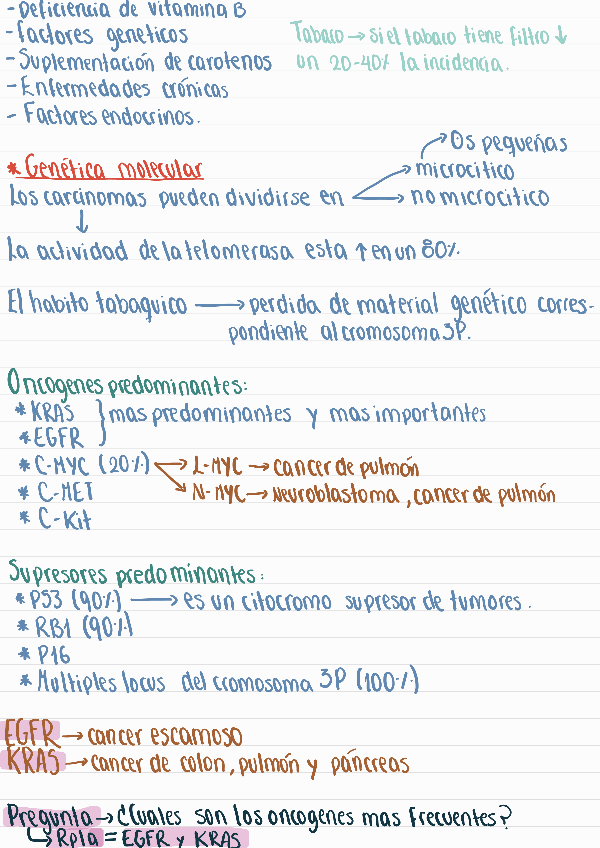 - Deficiencia de vitamina B
- factores geneticos
- Suplementación de carotenos
- Enfermedades crónicas
- Factores endocrinos.
Tabaco → si el tabaco tiene filtro ↓
un 20-40% la incidencia.
* Genética molecular
Os pequeñas
microcitico
Los carcinomas pueden dividirse en → no microcitico
↓
La actividad de la telomerasa esta ↑ en un 80%.
El habito tabaquico → perdida de material genético corres-
pondiente al cromosoma 3P.
Oncogenes predominantes:
* KRAS } mas predominantes y mas importantes
* EGFR
* C-MYC (20%) → L-MYC → cancer de pulmón
* C-MET → N-MYC → Neuroblastoma, cancer de pulmón
* C-Kit
Supresores predominantes:
* P53 (90%) → es un citocromo supresor de tumores.
* RB1 (90%)
* P16
* Multiples locus del cromosoma 3P (100%)
EGFR → cancer escamoso
KRAS → cancer de colon, pulmón y páncreas
Pregunta → ¿Cuales son los oncogenes mas frecuentes?
↳ Rpta = EGFR y KRAS